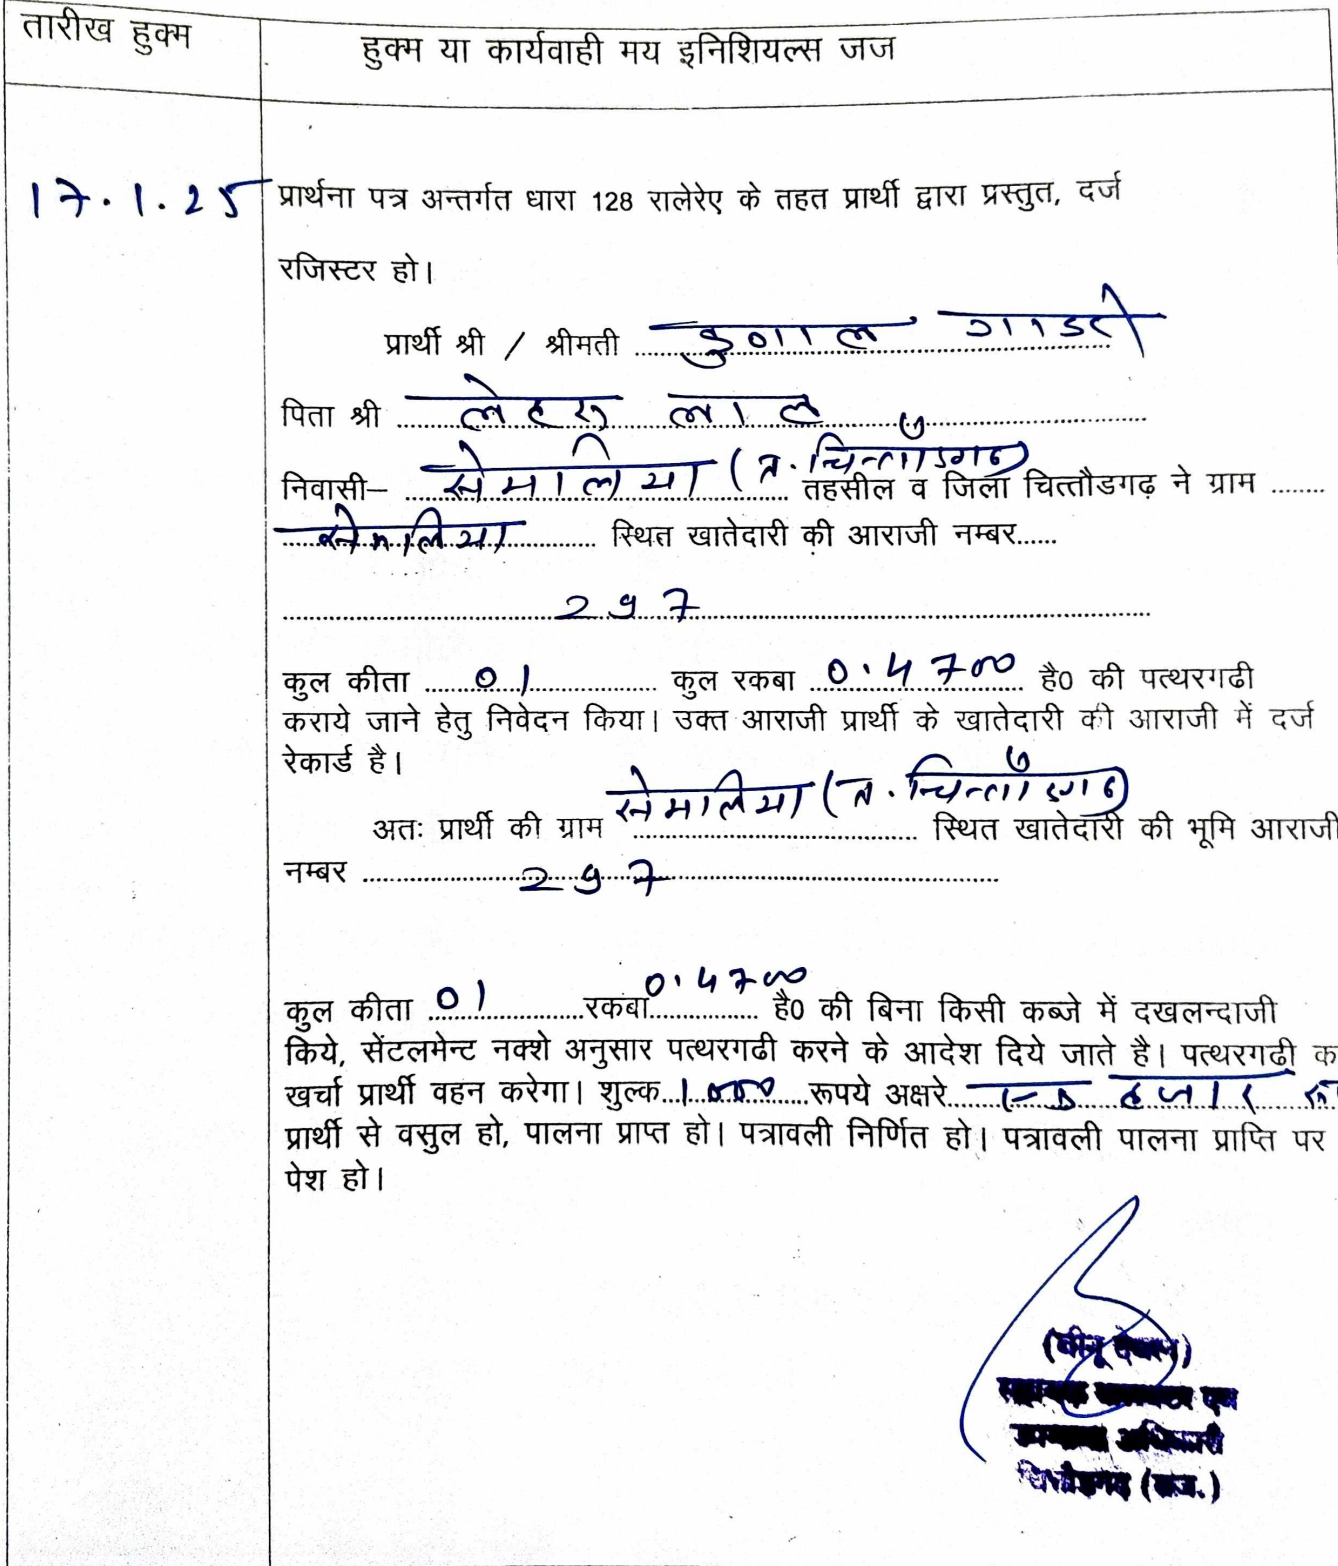 तारीख हुक्म
हुक्म या कार्यवाही मय इनिशियल्स जज
17.1.25
प्रार्थना पत्र अन्तर्गत धारा 128 रालेरेए के तहत प्रार्थी द्वारा प्रस्तुत, दर्ज
रजिस्टर हो।
प्रार्थी श्री / श्रीमती ........ गाडरी
पिता श्री ........ लेहरु लाल ........
निवासी– ........ सेमालिया (त. चित्तौडगढ) ........ तहसील व जिला चित्तौडगढ़ ने ग्राम ........
........ सेमालिया ........ स्थित खातेदारी की आराजी नम्बर......
........ 297 ........
कुल कीता ........ 01 ........ कुल रकबा ........ 0.4700 ........ है0 की पत्थरगढी
कराये जाने हेतु निवेदन किया। उक्त आराजी प्रार्थी के खातेदारी की आराजी में दर्ज
रेकार्ड है।
अतः प्रार्थी की ग्राम सेमालिया (त. चित्तौडगढ) ........ स्थित खातेदारी की भूमि आराजी
नम्बर ........ 297 ........
कुल कीता 01 ........रकबा 0.4700 ........ है0 की बिना किसी कब्जे में दखलन्दाजी
किये, सेंटलमेन्ट नक्शे अनुसार पत्थरगढी करने के आदेश दिये जाते है। पत्थरगढी क
खर्चा प्रार्थी वहन करेगा। शुल्क...1000....रूपये अक्षरे...... एक हजार रू
प्रार्थी से वसुल हो, पालना प्राप्त हो। पत्रावली निर्णित हो। पत्रावली पालना प्राप्ति पर
पेश हो।
(बीनू देवल)
सहायक कलक्टर एवं
उपखण्ड अधिकारी
चित्तौड़गढ़ (राज.)